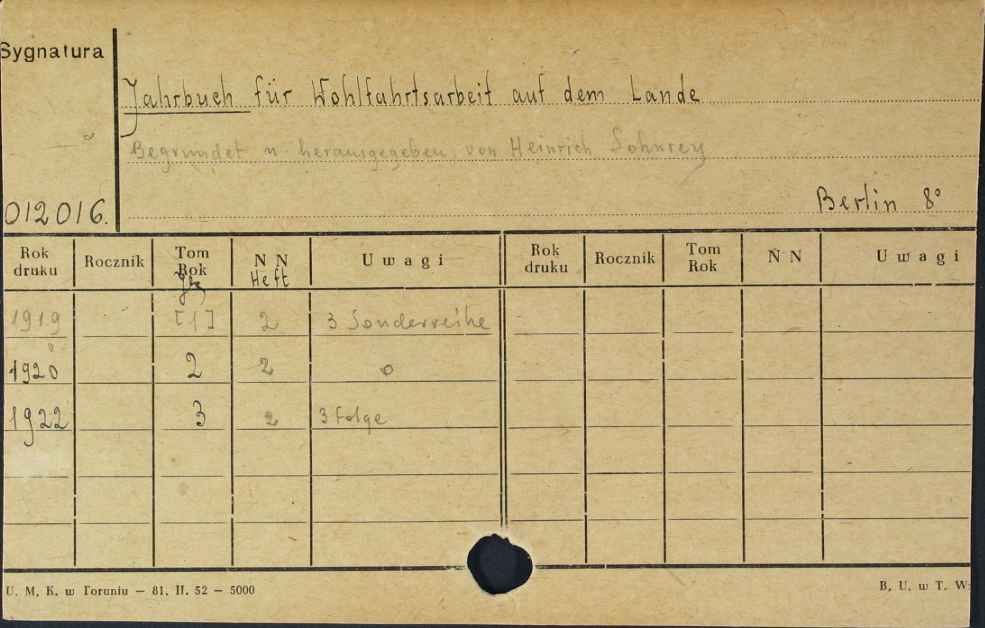 Sygnatura
Jahrbuch für Wohlfahrtsarbeit auf dem Lande
Begründet u. herausgegeben von Heinrich Sohnrey
012016.
Berlin 8°
Rok druku Rocznik Tom Rok Jg NN Heft Uwagi Rok druku Rocznik Tom Rok NN Uwagi
1919 [1] 2 3 Sonderreihe
1920 2 2 o
1922 3 2 3 Folge
U. M. K. w Toruniu — 81. II. 52 — 5000
B. U. w T. W: